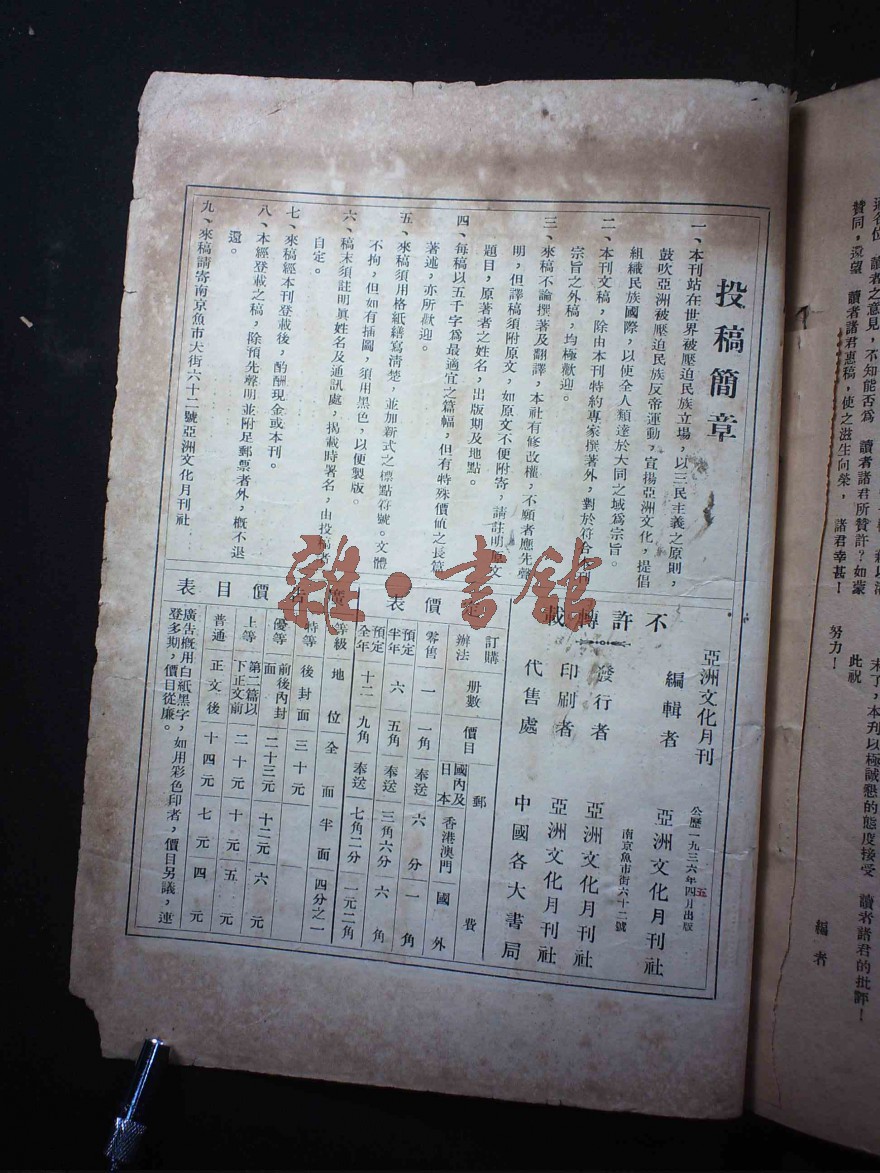 適各位　讀者之意見，不知能否為　讀者諸君所贊許？如蒙
贊同，還望　讀者諸君惠稿，使之滋生向榮，　諸君幸甚！
末了，本刊以極誠懇的態度接受　讀者諸君的批評！
此祝
努力！
編者
投稿簡章
一、本刊站在世界被壓迫民族立場，以三民主義之原則，
鼓吹亞洲被壓迫民族反帝運動，宣揚亞洲文化，提倡
組織民族國際，以使全人類達於大同之域爲宗旨。
二、本刊文稿，除由本刊特約專家撰著外，對於符合本刊
宗旨之外稿，均極歡迎。
三、來稿不論撰著及翻譯，本社有修改權，不願者應先聲
明，但譯稿須附原文，如原文不便附寄，請註明原文
題目，原著者之姓名，出版期及地點。
四、每稿以五千字爲最適宜之篇幅，但有特殊價値之長篇
著述，亦所歡迎。
五、來稿須用格紙繕寫清楚，並加新式之標點符號。文體
不拘，但如有插圖，須用黑色，以便製版。
六、稿末須註明眞姓名及通訊處，揭載時署名，由投稿者
自定。
七、來稿經本刊登載後，酌酬現金或本刊。
八、本經登載之稿，除預先聲明並附足郵票者外，概不退
還。
九、來稿請寄南京魚市大街六十二號亞洲文化月刊社
亞洲文化月刊
公歷一九三六年四月出版
五
編輯者　亞洲文化月刊社
南京魚市街六十二號
發行者　亞洲文化月刊社
印刷者　亞洲文化月刊社
代售處　中國各大書局
不許轉載
價表
訂購辦法　册數　價目　郵費
國內及日本　香港澳門　國外
零售　一　一角　奉送　六分　一角
預定半年　六　五角　奉送　三角六分　六角
預定全年　十二　九角　奉送　七角二分　一元二角
廣告價目表
等級　地位　全面　半面　四分之一
特等　後封面　三十元
優等　前後內封面　二十三元　十二元　六元
上等　第二篇以下正文前　二十元　十元　五元
普通　正文後　十四元　七元　四元
廣告概用白紙黑字，如用彩色印者，價目另議，連
登多期，價目從廉。
雜·書館